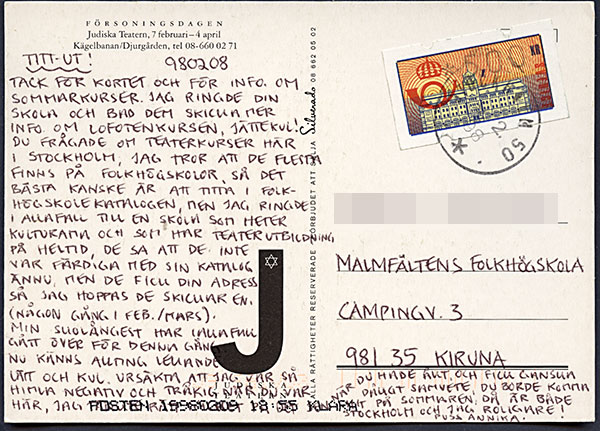 FÖRSONINGSDAGEN
Judiska Teatern, 7 februari – 4 april
Kägelbanan/Djurgården, tel 08-660 02 71
TITT-UT!
980208
TACK FÖR KORTET OCH FÖR INFO. OM
SOMMARKURSER. JAG RINGDE DIN
SKOLA OCH BAD DEM SKICKA MER
INFO. OM LOFOTENKURSEN, JÄTTEKUL!
DU FRÅGADE OM TEATERKURSER HÄR
I STOCKHOLM, JAG TROR ATT DE FLESTA
FINNS PÅ FOLKHÖGSKOLOR, SÅ DET
BÄSTA KANSKE ÄR ATT TITTA I FOLK-
HÖGSKOLEKATALOGEN, MEN JAG RINGDE
I ALLAFALL TILL EN SKOLA SOM HETER
KULTURAMA OCH SOM HAR TEATERUTBILDNING
PÅ HELTID, DE SA ATT DE INTE
VAR FÄRDIGA MED SIN KATALOG
ÄNNU, MEN DE FICK DIN ADRESS
SÅ JAG HOPPAS DE SKICKAR EN.
(NÅGON GÅNG I FEB./MARS).
MIN ALLAFALL
GÅTT ÖVER FÖR DENNA GÅNG
NU KÄNNS ALLTING LEKANDE
LÄTT OCH KUL. URSÄKTA ATT JAG VAR SÅ
HIMLA NEGATIV OCH TRÅKIG NÄR DU VAR
HÄR, JAG
POSTEN 19980209 18:55 KLARA
J
ALLA RÄTTIGHETER RESERVERADE FÖRBJUDET ATT SÄLJA Silverado 08 662 05 02
MALMFÄLTENS FOLKHÖGSKOLA
CAMPINGV. 3
981 35 KIRUNA
DU HADE ÅKT, OCH FICK GANSKA
DÅLIGT SAMVETE, DU BORDE KOMMA
PÅ SOMMAREN, DÅ ÄR BÅDE
STOCKHOLM OCH JAG ROLIGARE!
PUSS ANNIKA.